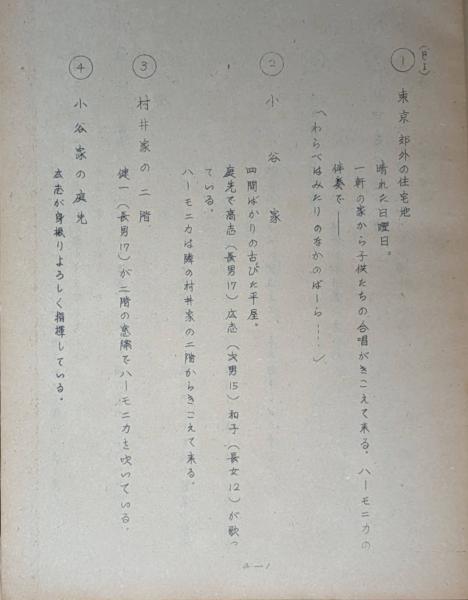 ①東京郊外の住宅地
晴れた日曜日。
一軒の家から子供たちの合唱がきこえて来る。ハーモニカの
伴奏で――
〽わらべはみたり のなかのばーら……〽
②小谷家
四間ばかりの古びた平屋。
庭先で高志(長男17)広志(次男15)和子(長女12)が歌っ
ている。
ハーモニカは隣の村井家の二階からきこえて来る。
③村井家の二階
健一(長男17)が二階の窓際でハーモニカを吹いている。
④小谷家の庭先
広志が身振りよろしく指揮している。
a—1